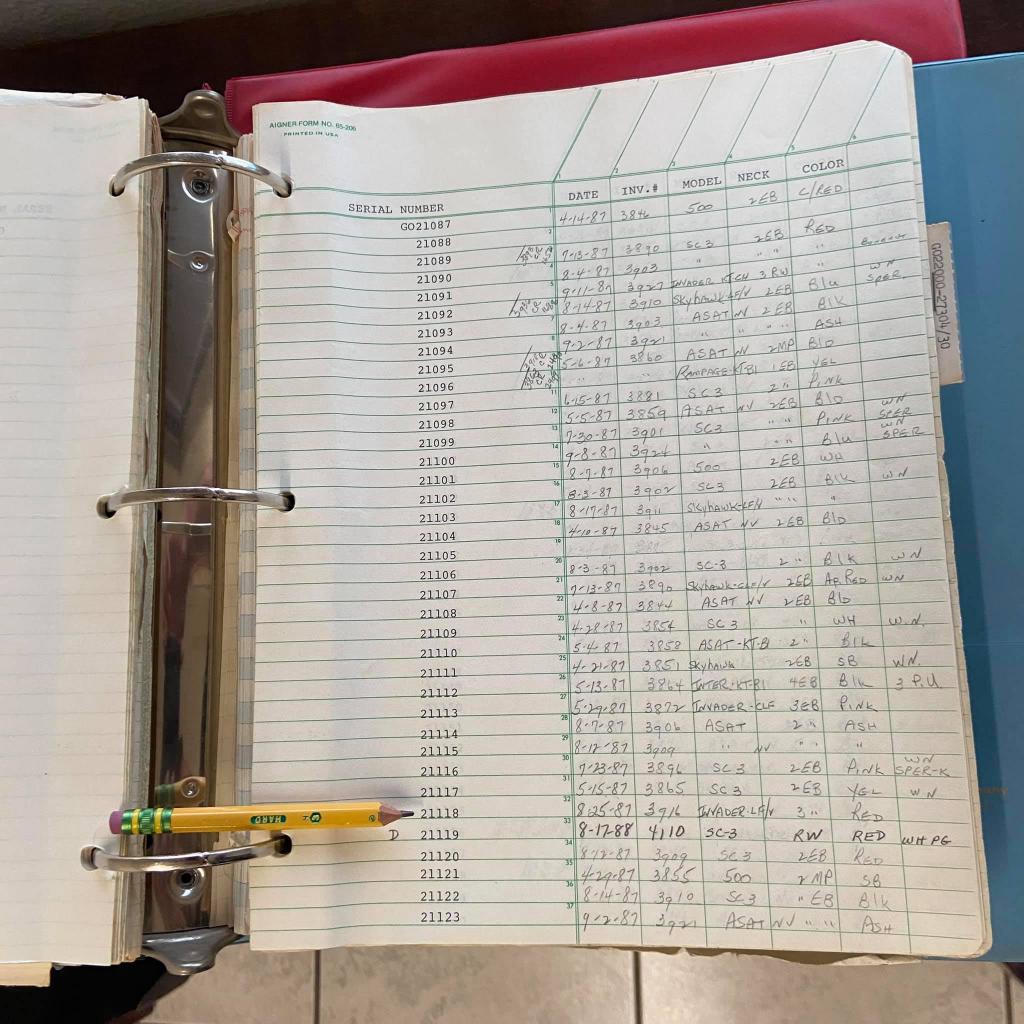 AIGNER FORM NO. 65-206
PRINTED IN USA
SERIAL NUMBER DATE INV.# MODEL NECK COLOR
GO21087 4-14-87 3846 500 2EB C/RED
21088
21089 7-13-87 3890 SC3 2EB RED
21090 8-4-87 3903 " " " "
21091 9-11-87 3927 INVADER KT-CH 3RW "
21092 8-14-87 3910 Skyhawk-LF/V 2EB Blu WN SPER
21093 8-4-87 3903 ASAT NV 2EB Blk
21094 9-2-87 3921 " " " " ASH
21095 5-6-87 3860 ASAT NV 2MP Blo
21096 " " RAMPAGE-KT-BI 1EB YEL
21097 6-15-87 3881 SC3 2 " PINK
21098 5-5-87 3859 ASAT NV 2EB Blo
21099 7-30-87 3901 SC3 " " PINK WN SPER
21100 9-8-87 3924 " " " Blu WN SPER
21101 8-7-87 3906 500 2EB WH
21102 8-3-87 3902 SC3 2EB Blk WN
21103 8-17-87 3911 Skyhawk-LF/V " " "
21104 4-10-87 3845 ASAT NV 2EB Blo
21105
21106 8-3-87 3902 SC-3 2 " Blk WN
21107 7-13-87 3890 Skyhawk-CLF/V 2EB Ap.RED WN
21108 4-8-87 3844 ASAT NV 2EB Blo
21109 4-28-87 3854 SC3 " WH W.N.
21110 5-4-87 3858 ASAT-KT-BI 2 " Blk
21111 4-21-87 3851 Skyhawk 2EB SB WN.
21112 5-13-87 3864 INTER-KT-BI 4EB Blk 3 P.U.
21113 5-29-87 3872 INVADER-CLF 3EB PINK
21114 8-7-87 3906 ASAT 2 " ASH
21115 8-12-87 3909 " NV " " "
21116 7-23-87 3896 SC3 2EB PINK WN SPER-K
21117 5-15-87 3865 SC3 2EB YEL WN
21118 8-25-87 3916 INVADER-LF/V 3 " RED
D 21119 8-17-88 4110 SC-3 RW RED WH PG
21120 8-12-87 3909 SC3 2EB RED
21121 4-29-87 3855 500 2MP SB
21122 8-14-87 3910 SC3 " EB Blk
21123 9-2-87 3921 ASAT NV " " ASH
G022000-27304/30
HARD